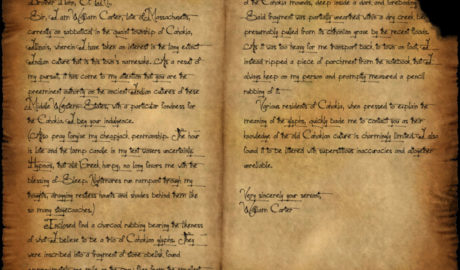 Sir, I am William Carter, late of Massachusetts,
currently on sabbatical in the quaint township of Cahokia,
Illinois, wherein I have taken an interest in the long extinct
Indian culture that is this town's namesake. As a result of
my pursuit, it has come to my attention that you are the
preeminent authority on the ancient Indian cultures of these
Middle Western States, with a particular fondness for
the Cahokia. I beg your indulgence.
(Also pray forgive my cheapjack penmanship. The hour
is late and the lamp candle in my tent wavers uncertainly.
Hypnos, that old Greek harpy, no long favors me with the
blessing of Sleep. Nightmares run rampant through my
thoughts, dragging restless haunts and shades behind them like
so many stagecoaches.)
Enclosed find a charcoal rubbing bearing the likeness
of what I believe to be a trio of Cahokian glyphs. They
were inscribed into a fragment of stone obelisk found
of the Cahokia mounds, deep inside a dark and foreboding
Said fragment was partially unearthed within a dry creek bed,
presumably pulled from its chthonian grave by the recent floods.
As it was too heavy for me transport back to town on foot, I
instead ripped a piece of parchment from the notebook that I
always keep on my person and promptly measured a pencil
rubbing of it.
Various residents of Cahokia, when pressed to explain the
meaning of the glyphs, quickly bade me to contact you as their
knowledge of the old Cahokian culture is charmingly limited. I also
found it to be littered with superstitious inaccuracies and altogether
unreliable.
Very sincerely your servant,
William Carter